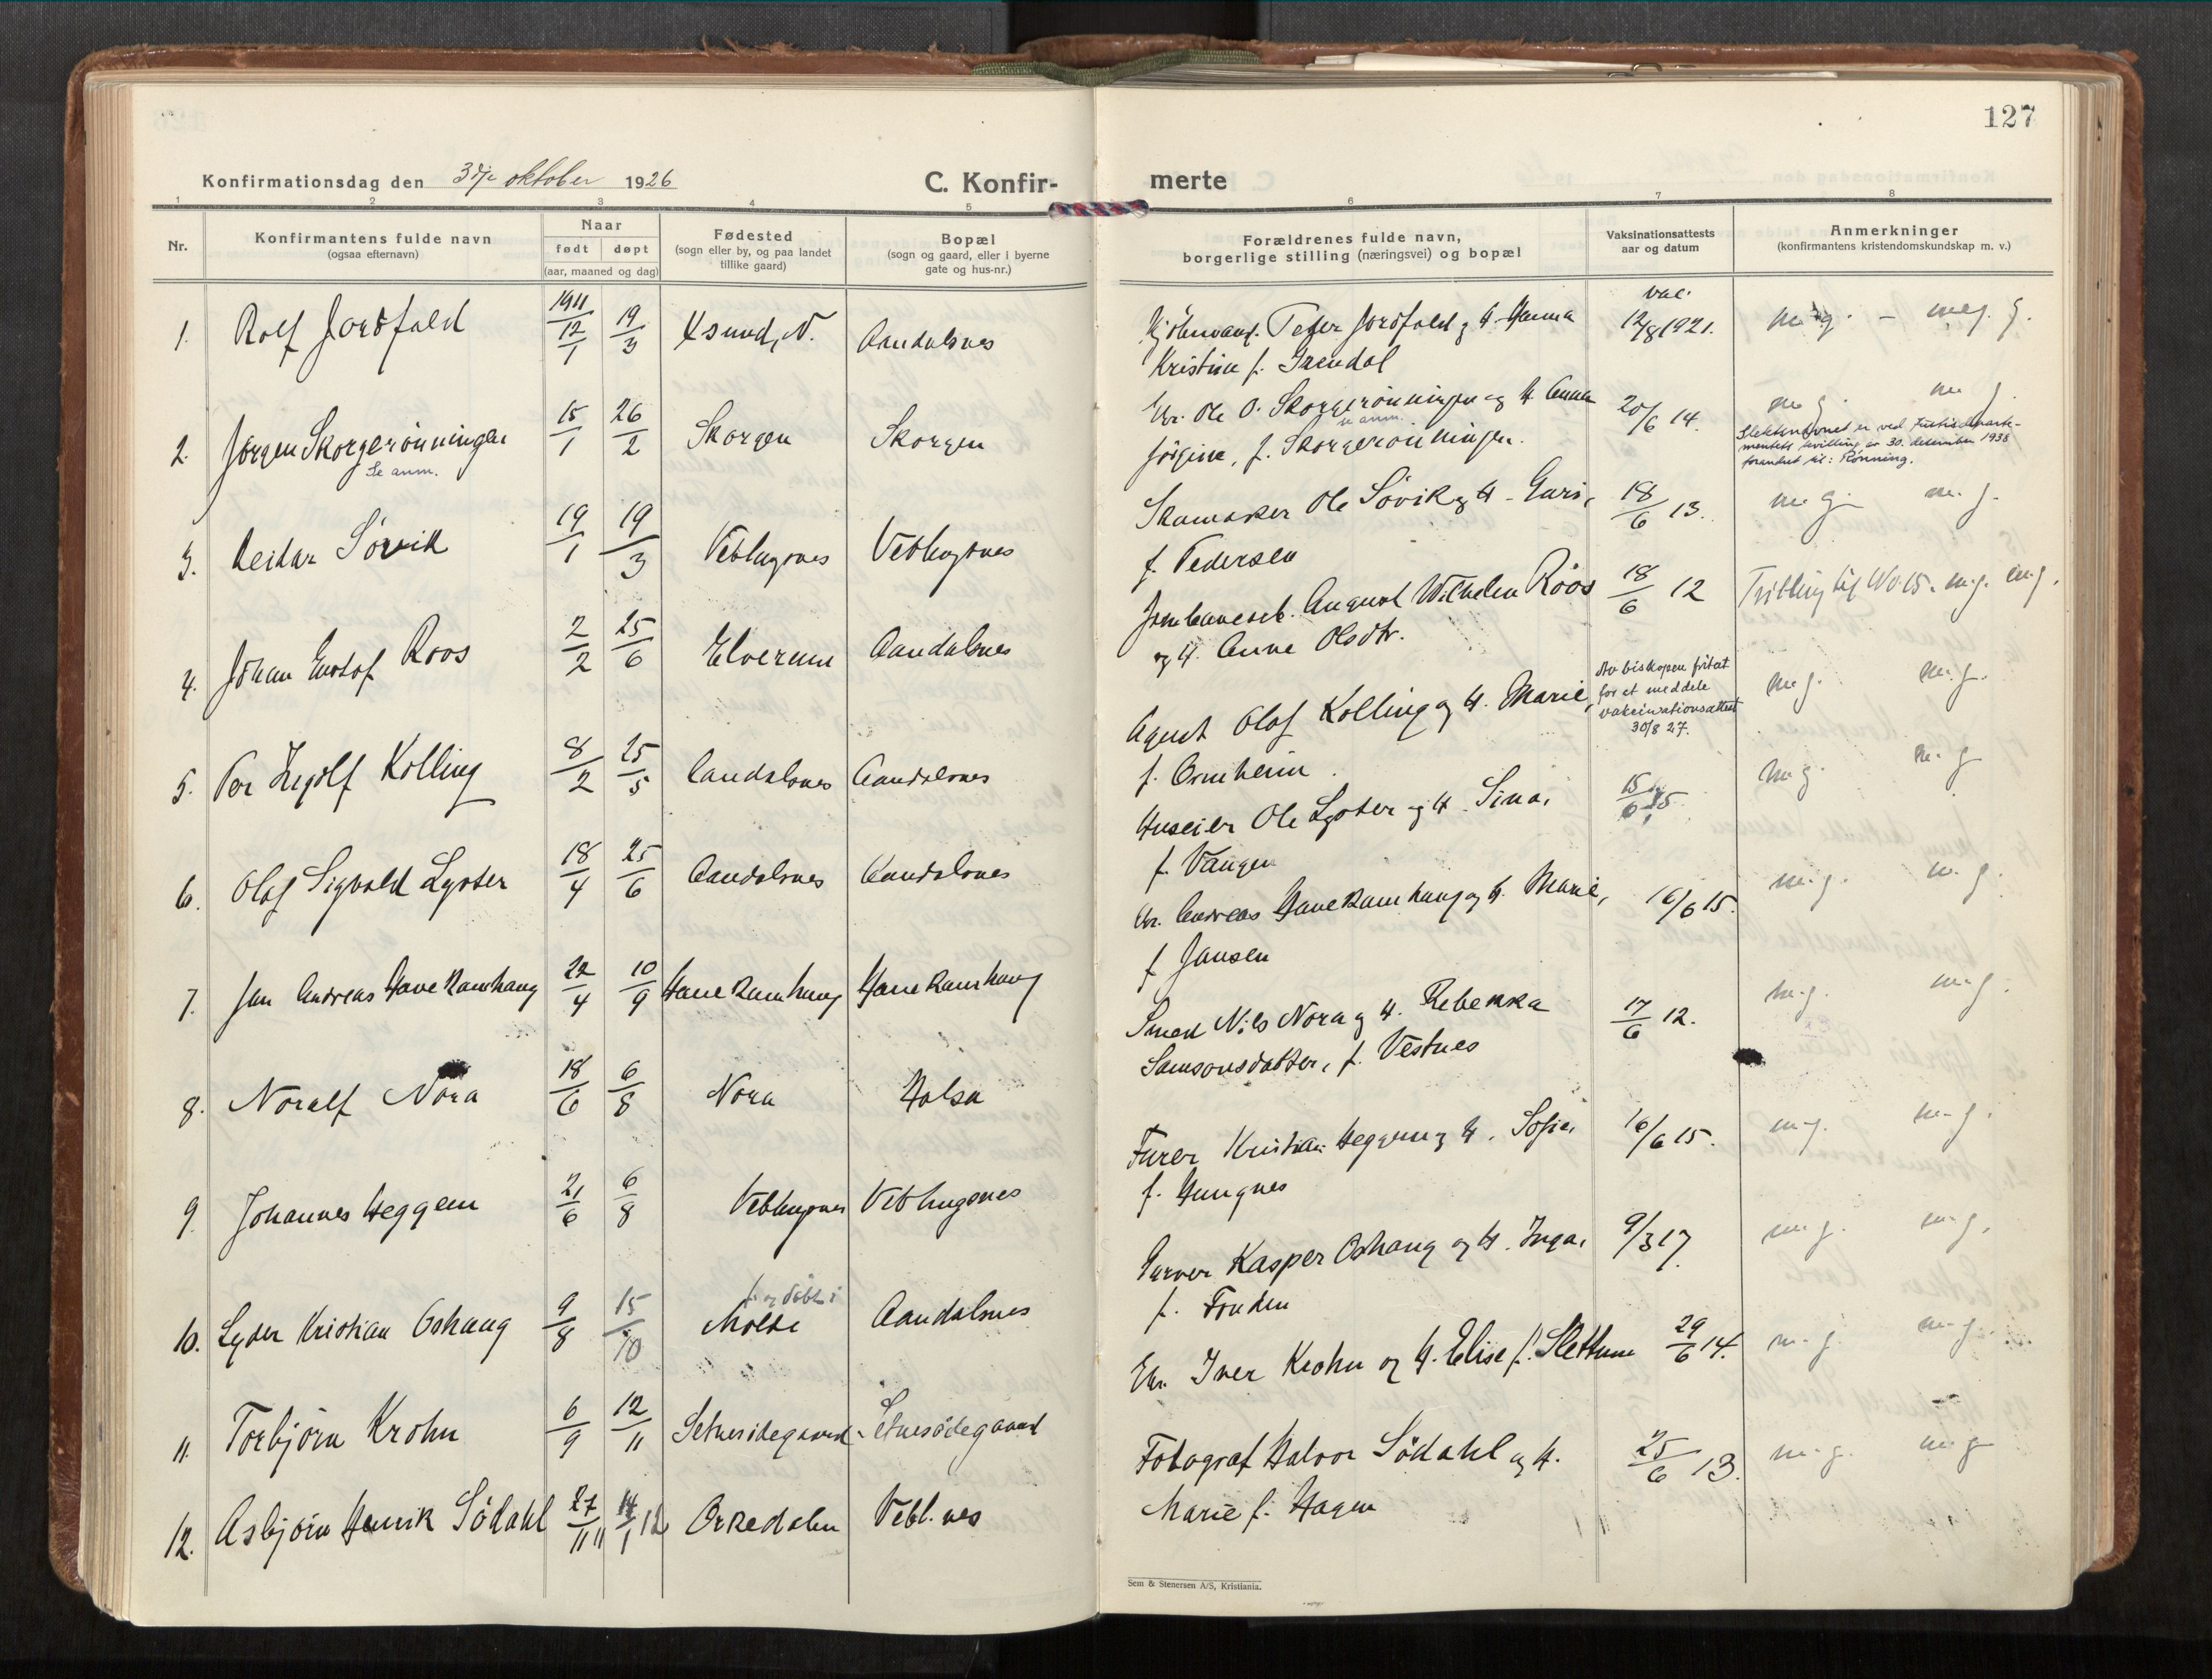 127
Konfirmationsdag den 3dje oktober 1926
C. Konfir-
merte
1 2 3 4 5 6 7 8
Nr.
Konfirmantens fulde navn
(ogsaa efternavn)
Naar
født døpt
(aar, maaned og dag)
Fødested
(sogn eller by, og paa landet
tillike gaard)
Bopæl
(sogn og gaard, eller i byerne
gate og hus-nr.)
Forældrenes fulde navn,
borgerlige stilling (næringsvei) og bopæl
Vaksinationsattests
aar og datum
Anmerkninger
(konfirmantens kristendomskundskap m. v.)
1. Rolf Jordfald 1911 12/1 19/3 Ksund, N. Aandalsnes
Peter Jordfald og H. Hanna
Kristine f. Grendal
vac. 12/8 1921. m.g. – meg. g.
2. Jørgen Skorgerønningen 15/1 26/2 Skorgen Skorgen
Se anm.
Gbr. Ole O. Skorgerønningen og H. Anna
se anm.
Jørgine, f. Skorgerønningen.
20/6 14. m g. m g.
Slektsnavnet er ved Justisdeparte-
mentets bevilling av 30. desember 1938
forandret til: Rønning.
3. Reidar Sørvik 19/1 19/3 Veblugsnes Veblugsnes
Skomaker Ole Søvik og H. Guri,
f. Pedersen
18/6 13. m g. m. g.
4. Johan Gustof Roos 2/2 25/6 Elverum Aandalsnes
Jernbanearb. August Wilhelm Roos
og H. Anne Olsdtr.
18/6 12 Tvilling til No 15. m.g. m.g.
5. Per Ingolf Kolling 8/2 25/5 Aandalsnes Aandalsnes
Agent Olaf Kolling og H. Marie,
f. Ormheim
Av biskopen fritat
for at meddele
vakcinationsattest
30/8 27.
m.g. m.g.
6. Olaf Sigvald Lyster 18/4 25/6 Aandalsnes Aandalsnes
Huseier Ole Lyster og H. Sina,
f. Vangen
15/6 15. m.g. m.g
7. Jan Andreas Hanekamhaug 22/4 10/9 Hanekamhaug Hanekamhaug
Gbr. Andreas Hanekamhaug og H. Marie,
f. Jansen
16/6 15. m.g. m.g.
8. Noralf Nora 18/6 6/8 Nora Holsa
Smed Nils Nora og H. Rebekka
Samsonsdatter, f. Vestnes
17/6 12. m.g. m.g.
9. Johannes Heggem 21/6 6/8 Veblugsnes Veblugsnes
Furer Kristian Heggem og H. Sofie,
f. Hungnes
16/6 15. m.g. m.g.
10. Lyder Kristian Oshaug 9/8 15/10 f. og døbt i
Molde Aandalsnes
Garver Kasper Oshaug og H. Inga,
f. Fonden
9/3 17. m.g. m.g.
11. Torbjørn Krohn 6/9 12/11 Setnesødegaard Setnesødegaard
Gbr. Iver Krohn og H. Elise f. Slettum 29/6 14. m.g. m.g.
12. Asbjørn Henrik Södahl 27/11 11 14/1 12 Orkedalen Vebl.nes
Fotograf Halvor Södahl og H.
Marie f. Hagen
25/6 13. m.g. m.g
Sem & Stenersen A/S, Kristiania.